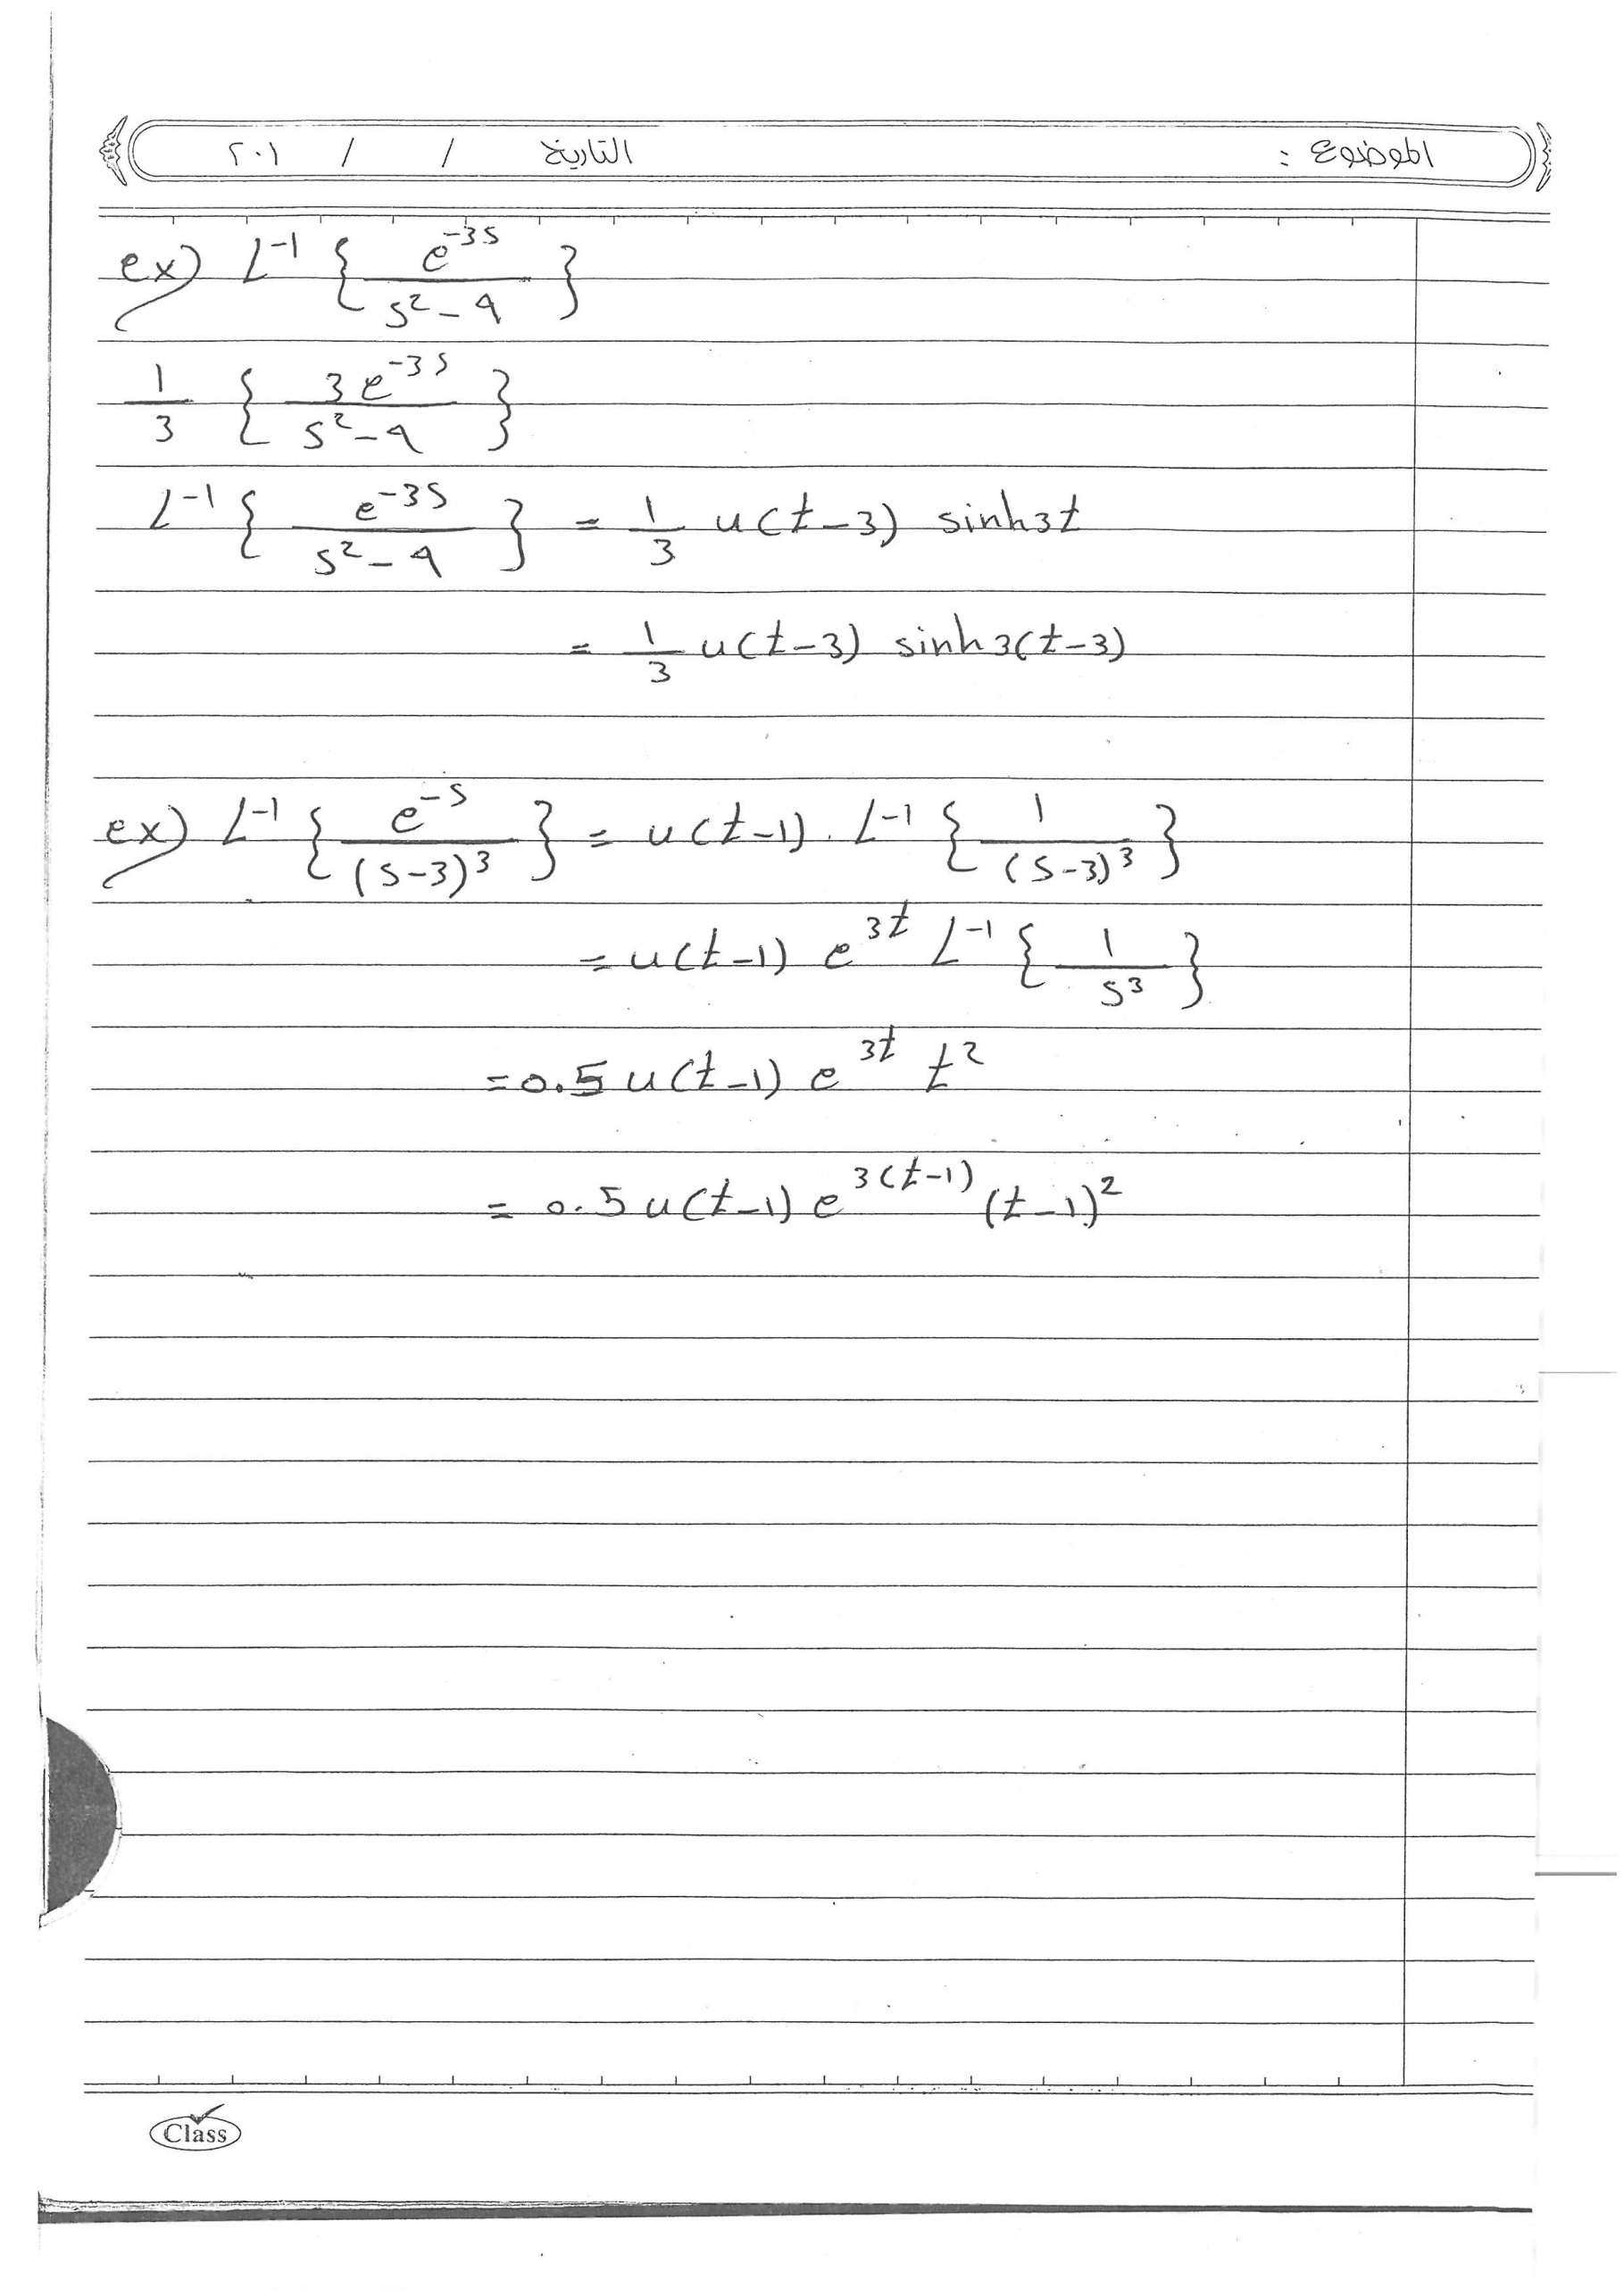 الموضوع : التاريخ / / ٢٠١
ex) L⁻¹ { e⁻³ˢ / (s² - 9) }
1/3 { 3e⁻³ˢ / (s² - 9) }
L⁻¹ { e⁻³ˢ / (s² - 9) } = 1/3 u(t-3) sinh3t
= 1/3 u(t-3) sinh3(t-3)
ex) L⁻¹ { e⁻ˢ / (s-3)³ } = u(t-1) . L⁻¹ { 1 / (s-3)³ }
= u(t-1) e³ᵗ L⁻¹ { 1 / s³ }
= 0.5 u(t-1) e³ᵗ t²
= 0.5 u(t-1) e³⁽ᵗ⁻¹⁾ (t-1)²
Class